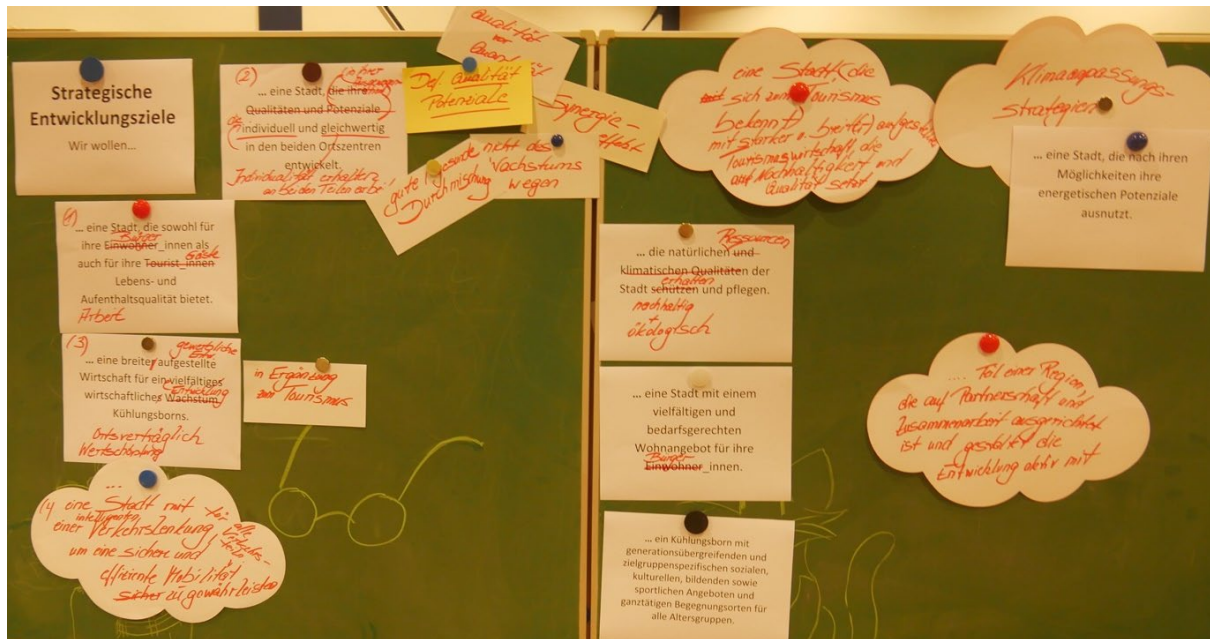 Strategische
Entwicklungsziele
Wir wollen...
(2)
in ihrer
... eine Stadt, die ihre
Qualitäten und Potenziale
individuell und gleichwertig
in den beiden Ortszentren
entwickelt.
Individualität erhalten
an beiden Teilen arbei
Def. Qualität
Potenziale
Qualität
vor
Synergie-
effekt
gute
Durchmischung
nicht des
Wachstums
wegen
... eine Stadt, die sowohl für
Bürger
ihre Einwohner_innen als
Gäste
auch für ihre Tourist_innen
Lebens- und
Aufenthaltsqualität bietet.
Arbeit
(3)
gewerbliche
... eine breite aufgestellte
Wirtschaft für ein vielfältiges
Entwicklung
wirtschaftliches Wachstum
Kühlungsborns.
Ortsverträglich
Wertschöpfung
in Ergänzung
zum Tourismus
...
eine Stadt mit für alle
intelligenten
einer Verkehrslenkung,
um eine sichere und
effiziente Mobilität
sicher zu gewährleisten
eine Stadt, (die
sich zum Tourismus
bekennt) aufgestellte
mit starker u. breiter
Tourismuswirtschaft, die
auf Nachhaltigkeit und
Qualität setzt
Klimaanpassungs-
strategien
... eine Stadt, die nach ihren
Möglichkeiten ihre
energetischen Potenziale
ausnutzt.
Ressourcen
... die natürlichen und
klimatischen Qualitäten der
erhalten
Stadt schützen und pflegen.
nachhaltig
+
ökologisch
... eine Stadt mit einem
vielfältigen und
bedarfsgerechten
Wohnangebot für ihre
Bürger
Einwohner_innen.
.... Teil einer Region,
die auf Partnerschaft und
Zusammenarbeit ausgerichtet
ist und gestaltet die
Entwicklung aktiv mit
... ein Kühlungsborn mit
generationsübergreifenden und
zielgruppenspezifischen sozialen,
kulturellen, bildenden sowie
sportlichen Angeboten und
ganztätigen Begegnungsorten für
alle Altersgruppen.